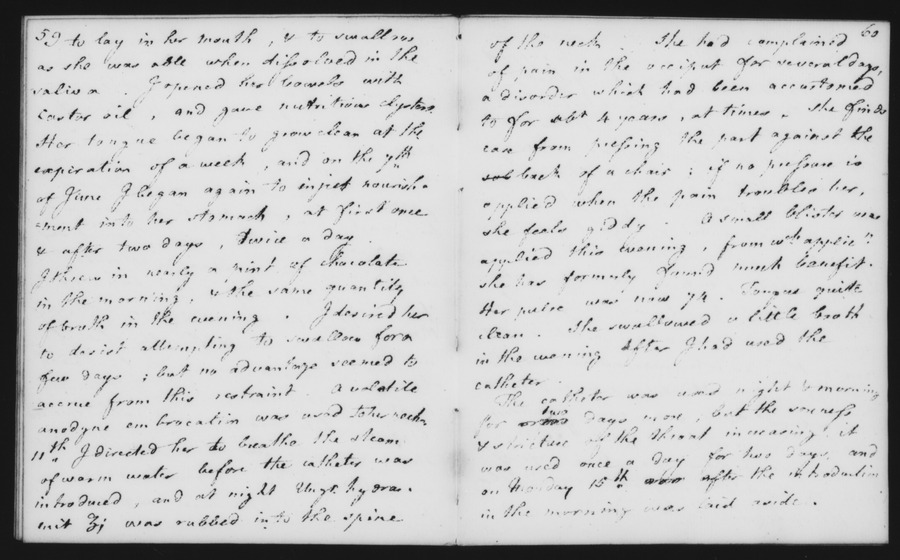 59 to lay in her mouth, & to swallow
as she was able when dissolved in the
saliva. I opened her bowels with
Castor oil, and gave nutritious clysters.
Her tongue began to grow clean at the
expiration of a week, and on the 7th
of June I began again to inject nourish=
=ment into her stomach, at first once
& after two days, twice a day.
I threw in nearly a pint of Chocolate
in the morning, & the same quantity
of broth in the evening. I desired her
to desist attempting to swallow for a
few days; but no advantage seemed to
accrue from this restraint. A volatile
anodyne embrocation was used to her neck.
11th I directed her to breathe the steam
of warm water before the catheter was
introduced, and at night Ungt. hydrar.
mit ʒi was rubbed into the spine
60
of the neck. She had complained
of pain in the occiput for several days,
a disorder which had been accustomed
to for abt 4 years, at times. She finds
ease from pressing the part against the
back of a chair; if no pressure is
applied when the pain troubles her,
she feels giddy. A small blister was
applied this evening, from wch applicn
she has formerly found much benefit.
Her pulse was now 74. Tongue quite
clean. She swallowed a little broth
in the evening after I had used the
catheter.
The catheter was used night & morning
for two days more, but the soreness
& stricture of the throat increasing, it
was used once a day for two days, and
on Monday 15th after the introduction
in the morning was laid aside.